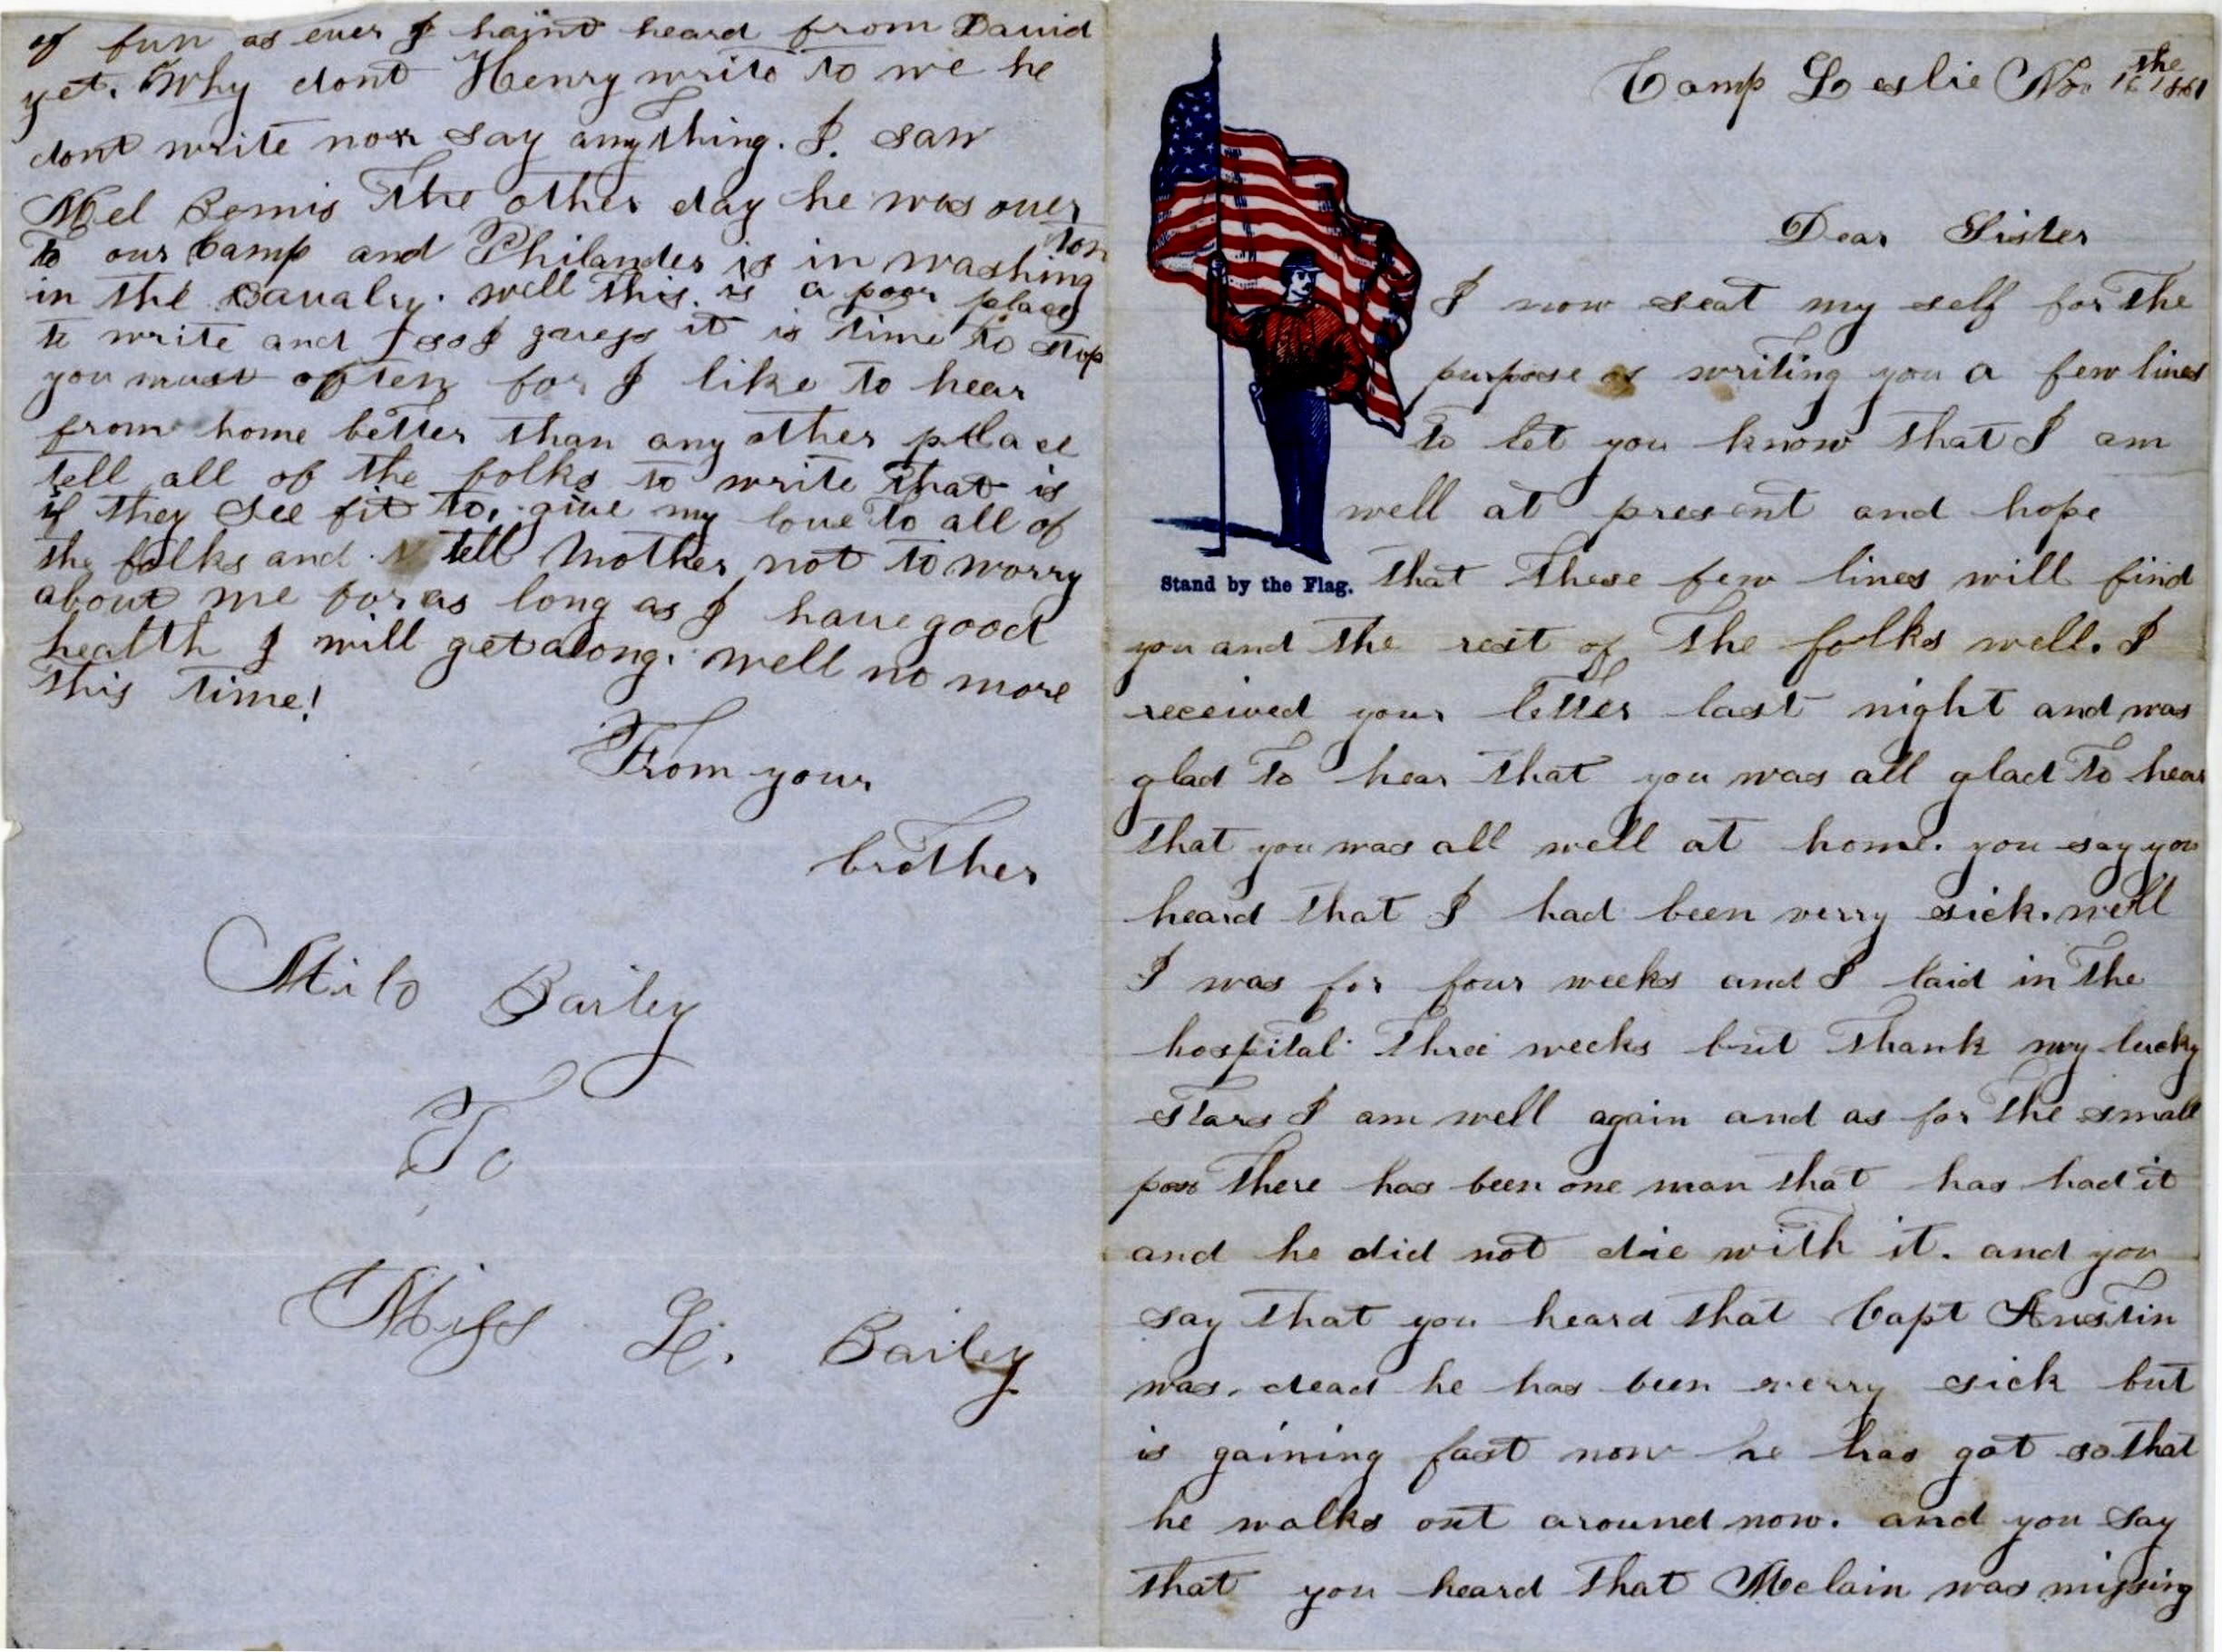 Camp Leslie No. 16 the 1861
Dear Sister
I now seat my self for the
purpose of writing you a few lines
to let you know that I am
well at present and hope
that these few lines will find
Stand by the Flag.
you and the rest of the folks well. I
received your letter last night and was
glad to hear that you was all glad to hear
that you was all well at home. you say you
heard that I had been verry sick. well
I was for four weeks and I laid in the
hospital three weeks but thank my lucky
stars I am well again and as for the small
pox there has been one man that has had it
and he did not die with it. and you
say that you heard that Capt Austin
was dead he has been verry sick but
is gaining fast now he has got so that
he walks out around now. and you say
that you heard that Mclain was missing
of fun as ever I haint heard from David
yet. Why dont Henry write to me he
dont write nor say anything. I. saw
Mel Bemis the other day he was over
to our Camp and Philander is in washington
in the Cavalry. well this. is a poor place
to write and I guess it is time to stop
you must often for I like to hear
from home better than any other place
tell all of the folks to write that is
if they see fit to. give my love to all of
the folks and tell Mother not to worry
about me for as long as I have good
health I will get along. well no more
this time!
From your
brother
Milo Bailey
To
Miss L. Bailey